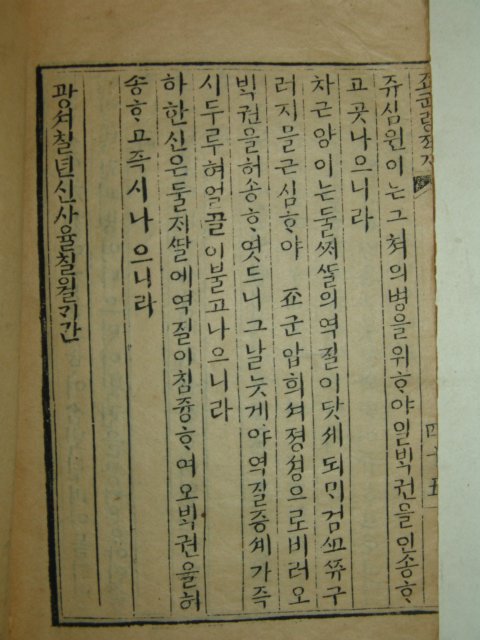 죠군령젹지
四十五
쥬심원이는그쳐의병을위ᄒᆞ야일ᄇᆡᆨ권을인송ᄒᆞ
고곳나으니라
차근양이는둘ᄶᅢᄯᆞᆯ의역질이닷ᄉᆡ되ᄆᆡ검ᄲᅩᄶᅲ구
러지믈근심ᄒᆞ야죠군압희셔졍셩으로비러오
ᄇᆡᆨ권을허송ᄒᆞ엿드니그날늣게야역질증셰가즉
시두루혀얼골이불고나으니라
하한신은둘ᄌᆡᄯᆞᆯ에역질이침즁ᄒᆞ여오ᄇᆡᆨ권을허
송ᄒᆞ고즉시나으니라
광셔칠년신사윤칠월긔간